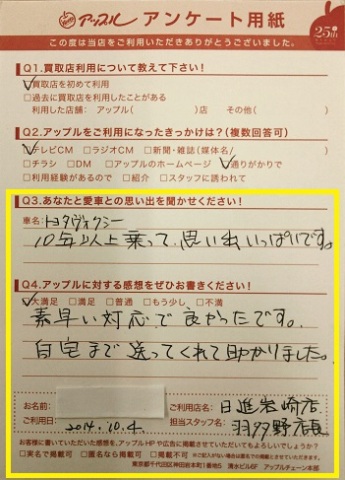 アップル アンケート用紙
25th
この度は当店をご利用いただきありがとうございました。
Q1.買取店利用について教えて下さい!
☑買取店を初めて利用
□過去に買取店を利用したことがある
利用した店舗: アップル( )店 その他( )
Q2.アップルをご利用になったきっかけは?(複数回答可)
☑テレビCM □ラジオCM □新聞・雑誌(媒体名/ )
□チラシ □DM □アップルのホームページ ☑通りがかりで
□利用経験があるので □紹介 □スタッフに誘われて
Q3.あなたと愛車との思い出を聞かせください!
車名:トヨタヴォクシー
10年以上乗って、思い出いっぱいです。
Q4.アップルに対する感想をぜひお書きください!
☑大満足 □満足 □普通 □もう少し □不満
素早い対応で良かったです。
自宅まで送ってくれて助かりました。
お名前: ご利用店名: 日進岩崎店
ご利用日: 2014.10.4. 担当スタッフ名: 羽多野店長
お客様に書いていただいた感想を、アップルHPや広告に掲載させていただいてもよろしいでしょうか?
□実名で掲載可 □匿名なら掲載可 □掲載不可 ※ご記入がない場合は匿名での掲載とさせていただきます。
東京都千代田区神田岩本町1番地5 清水ビル6F アップルチェーン本部